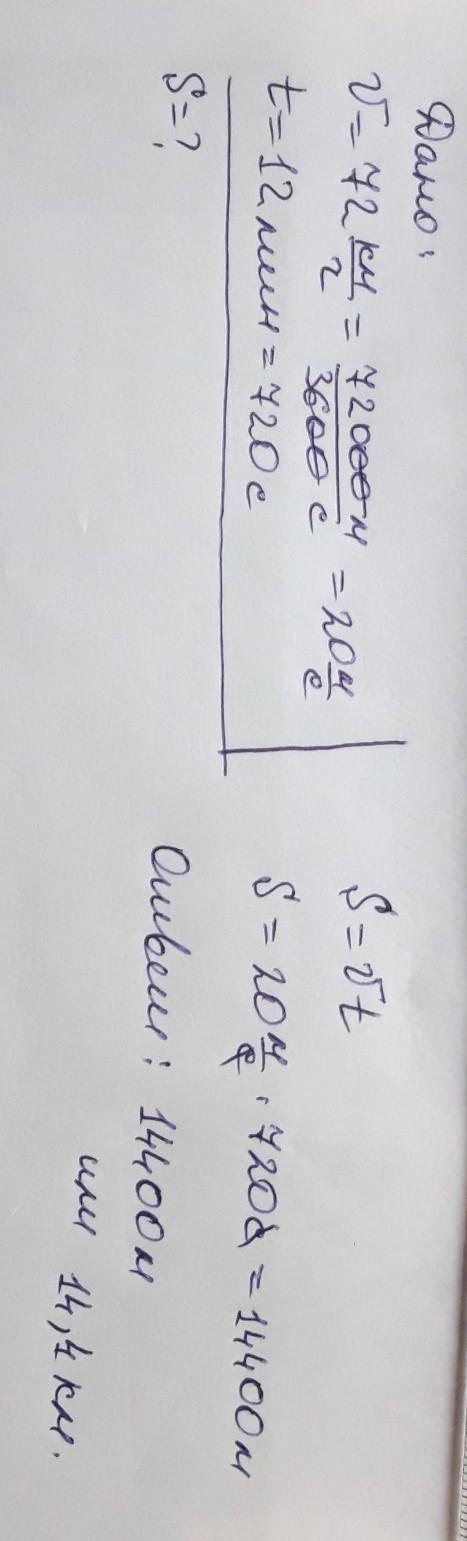 Дано:
v = 72 км/ч = 72000м/3600с = 20 м/с
t = 12 мин = 720 с
S = ?
S = vt
S = 20 м/с · 720с = 14400 м
Ответ: 14400 м
или 14,4 км.